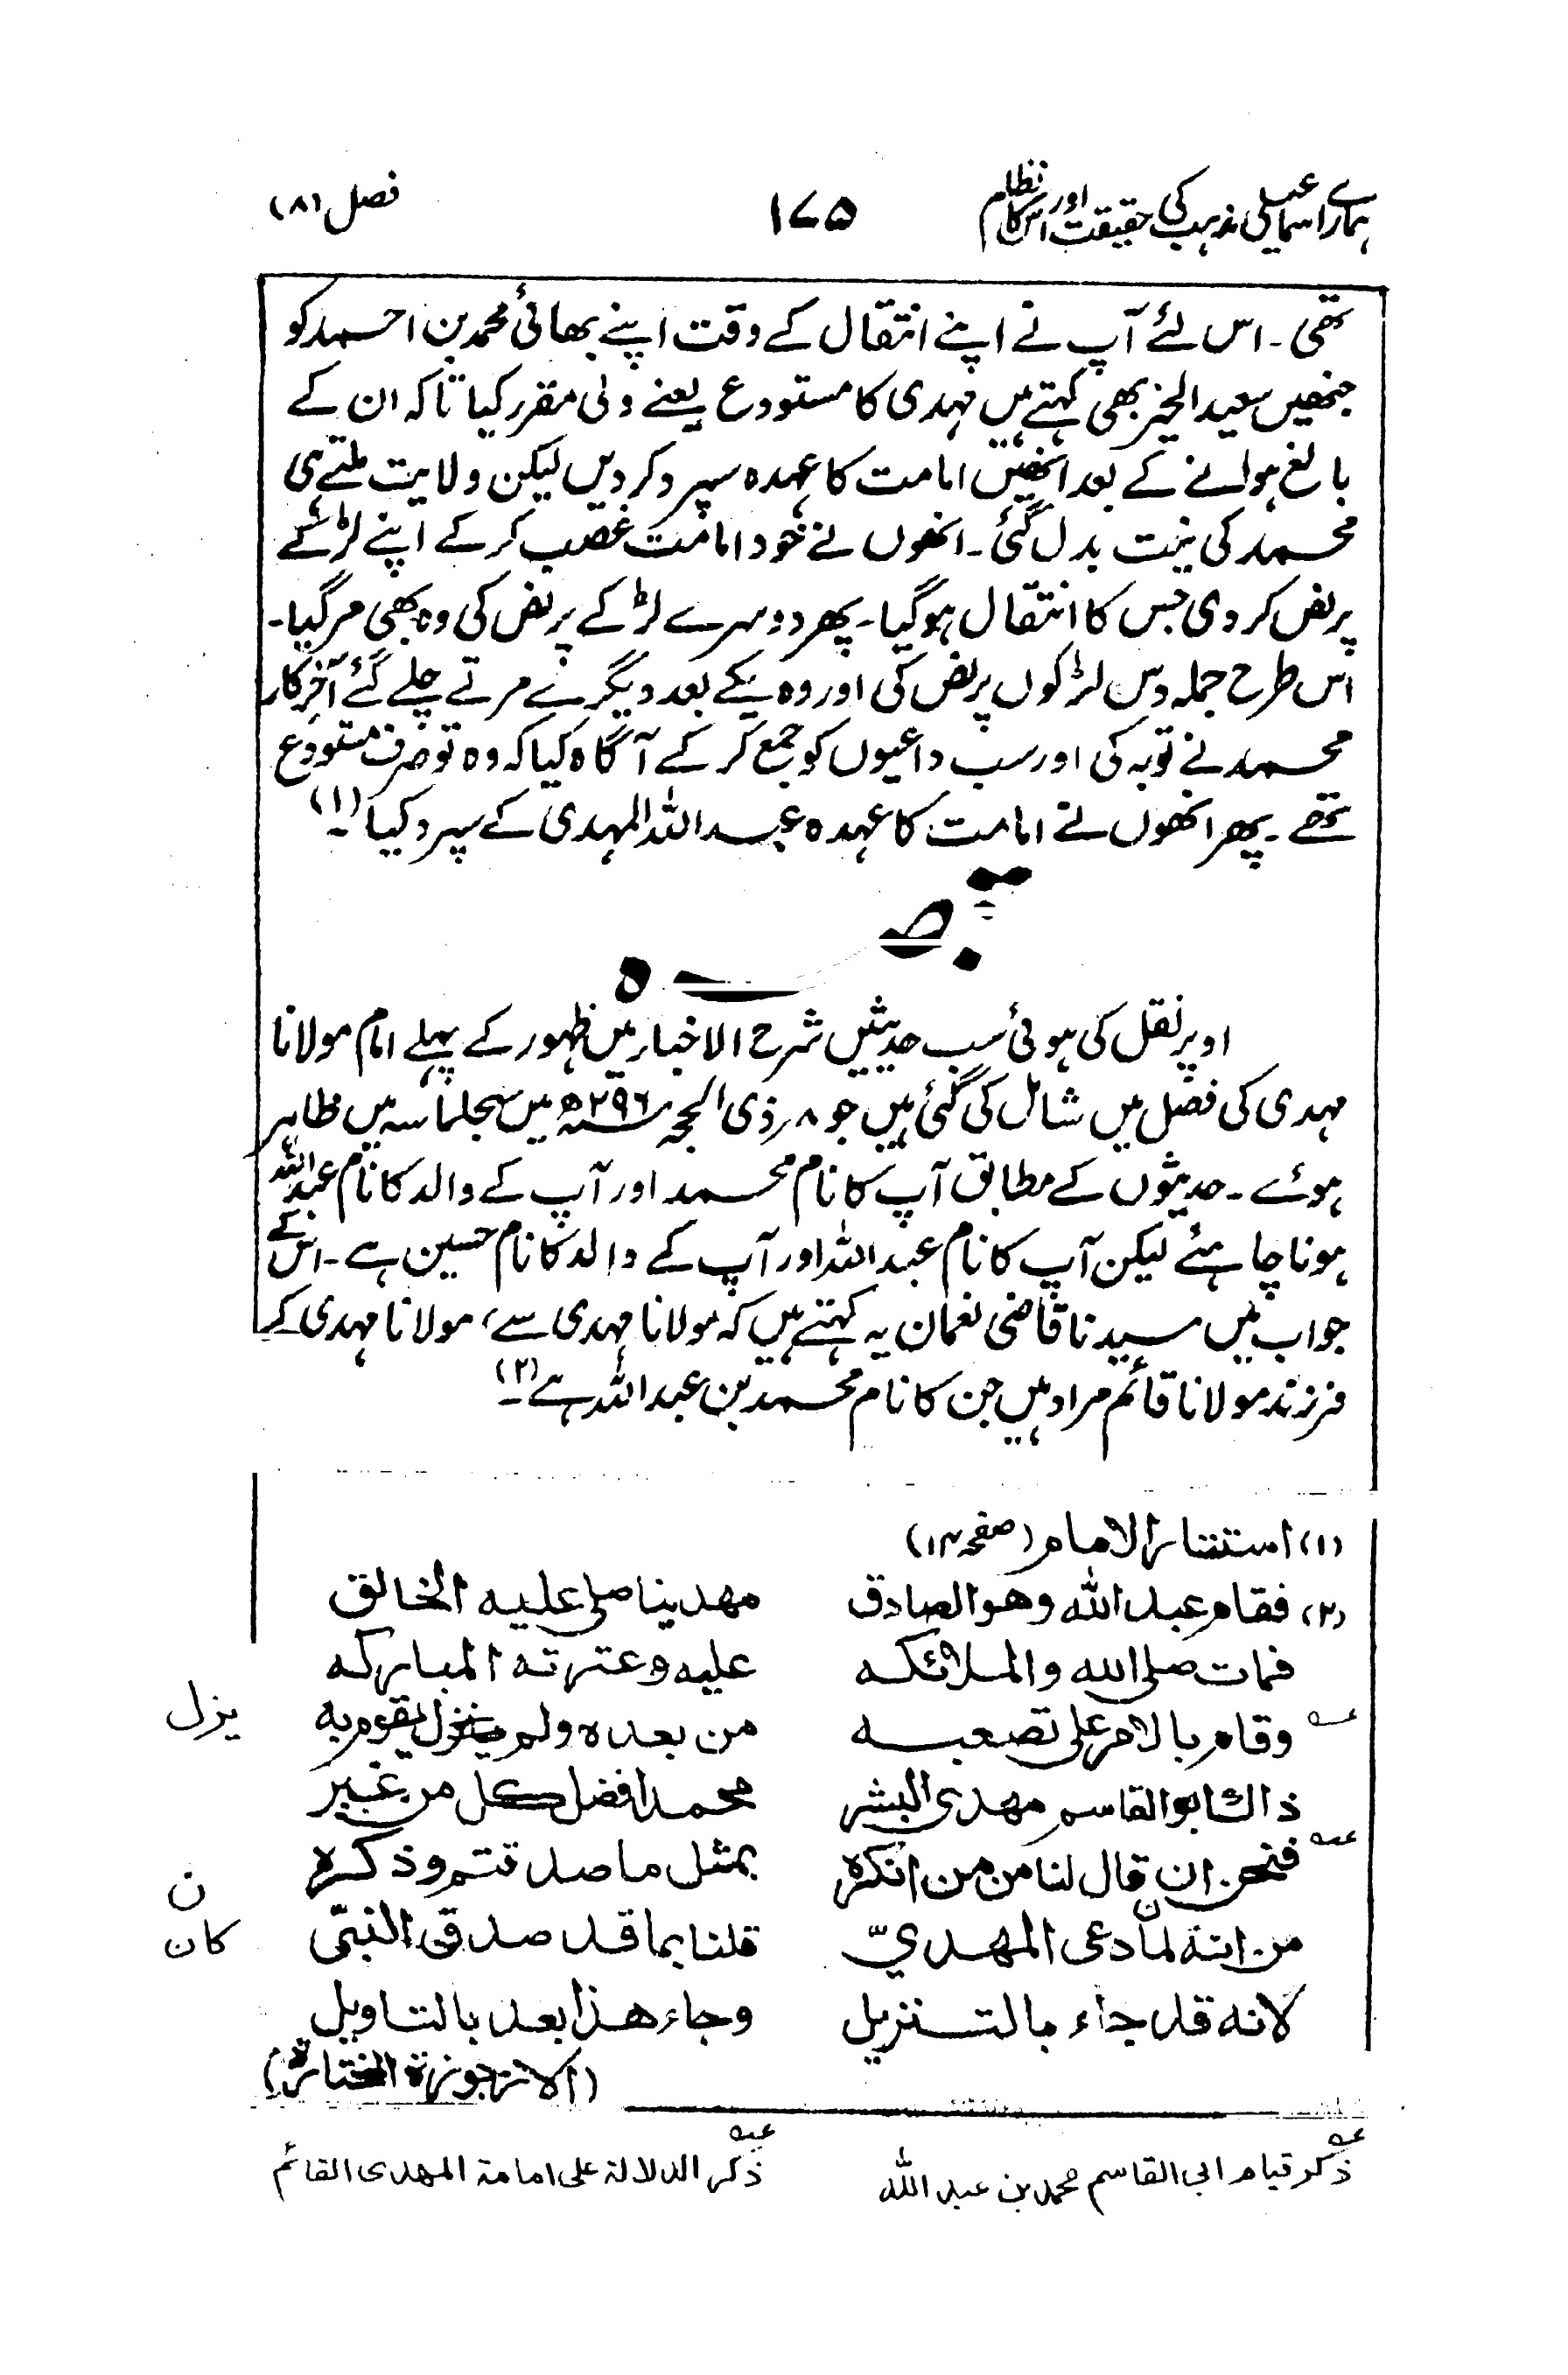 ہمارے اسماعیلی مذہب کی حقیقت اور اس کا نظام ۱۷۵ فصل (۸)
تھی۔ اس لئے آپ نے اپنے انتقال کے وقت اپنے بھائی محمد بن احمد کو
جنھیں سعید الخیر بھی کہتے ہیں مہدی کا مستودع یعنے ولی مقرر کیا تاکہ ان کے
بالغ ہولنے کے بعد انھیں امامت کا عہدہ سپرد کردیں لیکن ولایت ملتے ہی
محمد کی نیت بدل گئی۔ انھوں نے خود امامت غصب کرکے اپنے لڑکے
پر نص کردی جس کا انتقال ہوگیا۔ پھر دوسرے لڑکے پر نص کی وہ بھی مرگیا۔
اس طرح جملہ دس لڑکوں پر نص کی اور وہ یکے بعد دیگرے مرتے چلے گئے آخر کار
محمد نے توبہ کی اور سب داعیوں کو جمع کرکے آگاہ کیا کہ وہ تو صرف مستودع
تھے۔ پھر انھوں نے امامت کا عہدہ عبداللہ المہدی کے سپرد کیا۔ (۱)
تبصرہ
اوپر نقل کی ہوئی سب حدیثیں شرح الاخبار میں ظہور کے پہلے امام مولانا
مہدی کی فصل میں شامل کی گئی ہیں جو ۸ر ذی الحجہ ۲۹۶ھ میں سجلماسہ میں ظاہر
ہوئے۔ حدیثوں کے مطابق آپ کا نام محمد اور آپ کے والد کا نام عبداللہ
ہونا چاہئے لیکن آپ کا نام عبداللہ اور آپ کے والد کا نام حسین ہے۔ اس کے
جواب میں سیدنا قاضی نعمان یہ کہتے ہیں کہ مولانا مہدی سے، مولانا مہدی کے
فرزند مولانا قائم مراد ہیں جن کا نام محمد بن عبداللہ ہے۔ (۲)
(۱) استتار الامام (صفحہ ۱۳)
(۲) فقام عبد الله وهو الصادق مهدينا صلى عليه الخالق
فمات صلى الله والملائكه عليه وعترته المباركه
عه وقام بالامر على تصعبه من بعده ولم يقوم به يزل
ذاك ابو القاسم مهدى البشر محمد افضل كل من غبر
عه فنحن ان قال لنا من من انكره بمثل ما صدقتم وذكره ن
من انه لما دعى المهديّ ن قلنا بما قد صدق النبىّ كان
لانه قد جاء بالتنزيل وجاء هذا بعد بالتاويل
(الارجوزة المختارة)
عه ذكر قيام ابى القاسم محمد بن عبد الله
عه ذكر الدلالة على امامة المهدى القائم